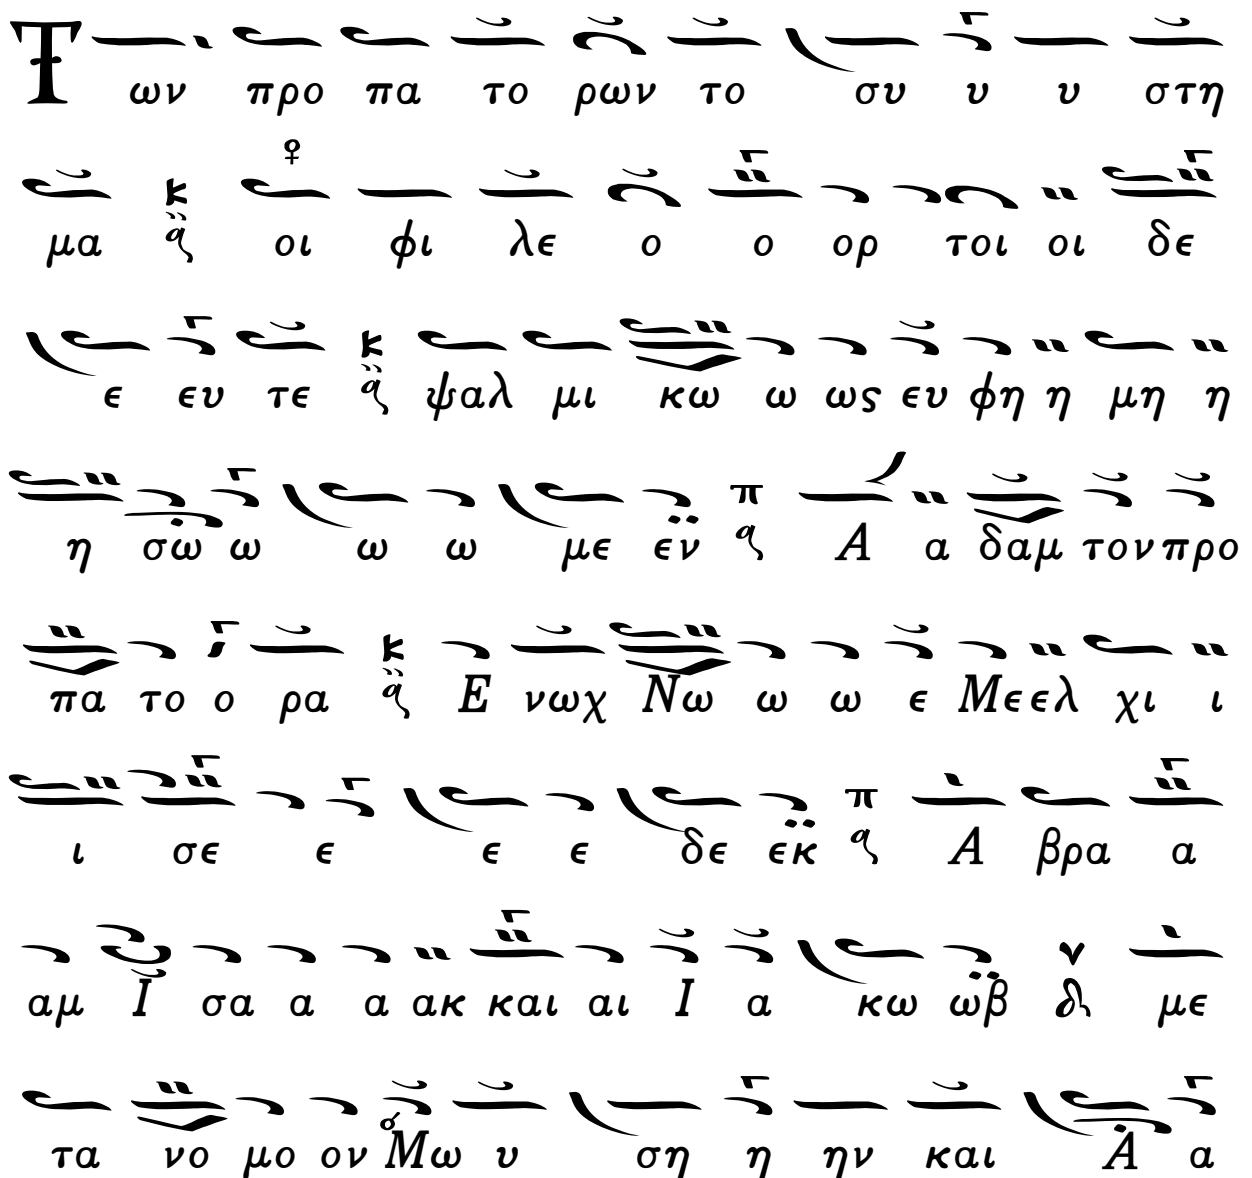 Των προ πα το ρων το συ υ υ στη
μα οι φι λε ο ο ορ τοι οι δε
ε ευ τε ψαλ μι κω ω ως ευ φη η μη η
η σω ω ω ω με εν Α α δαμ τον προ
πα το ο ρα Ε νωχ Νω ω ω ε Με ελ χι ι
ι σε ε ε ε δε εκ Α βρα α
αμ Ι σα α α ακ και αι Ι α κω ωβ με
τα νο μο ον Μω υ ση η ην και Α α